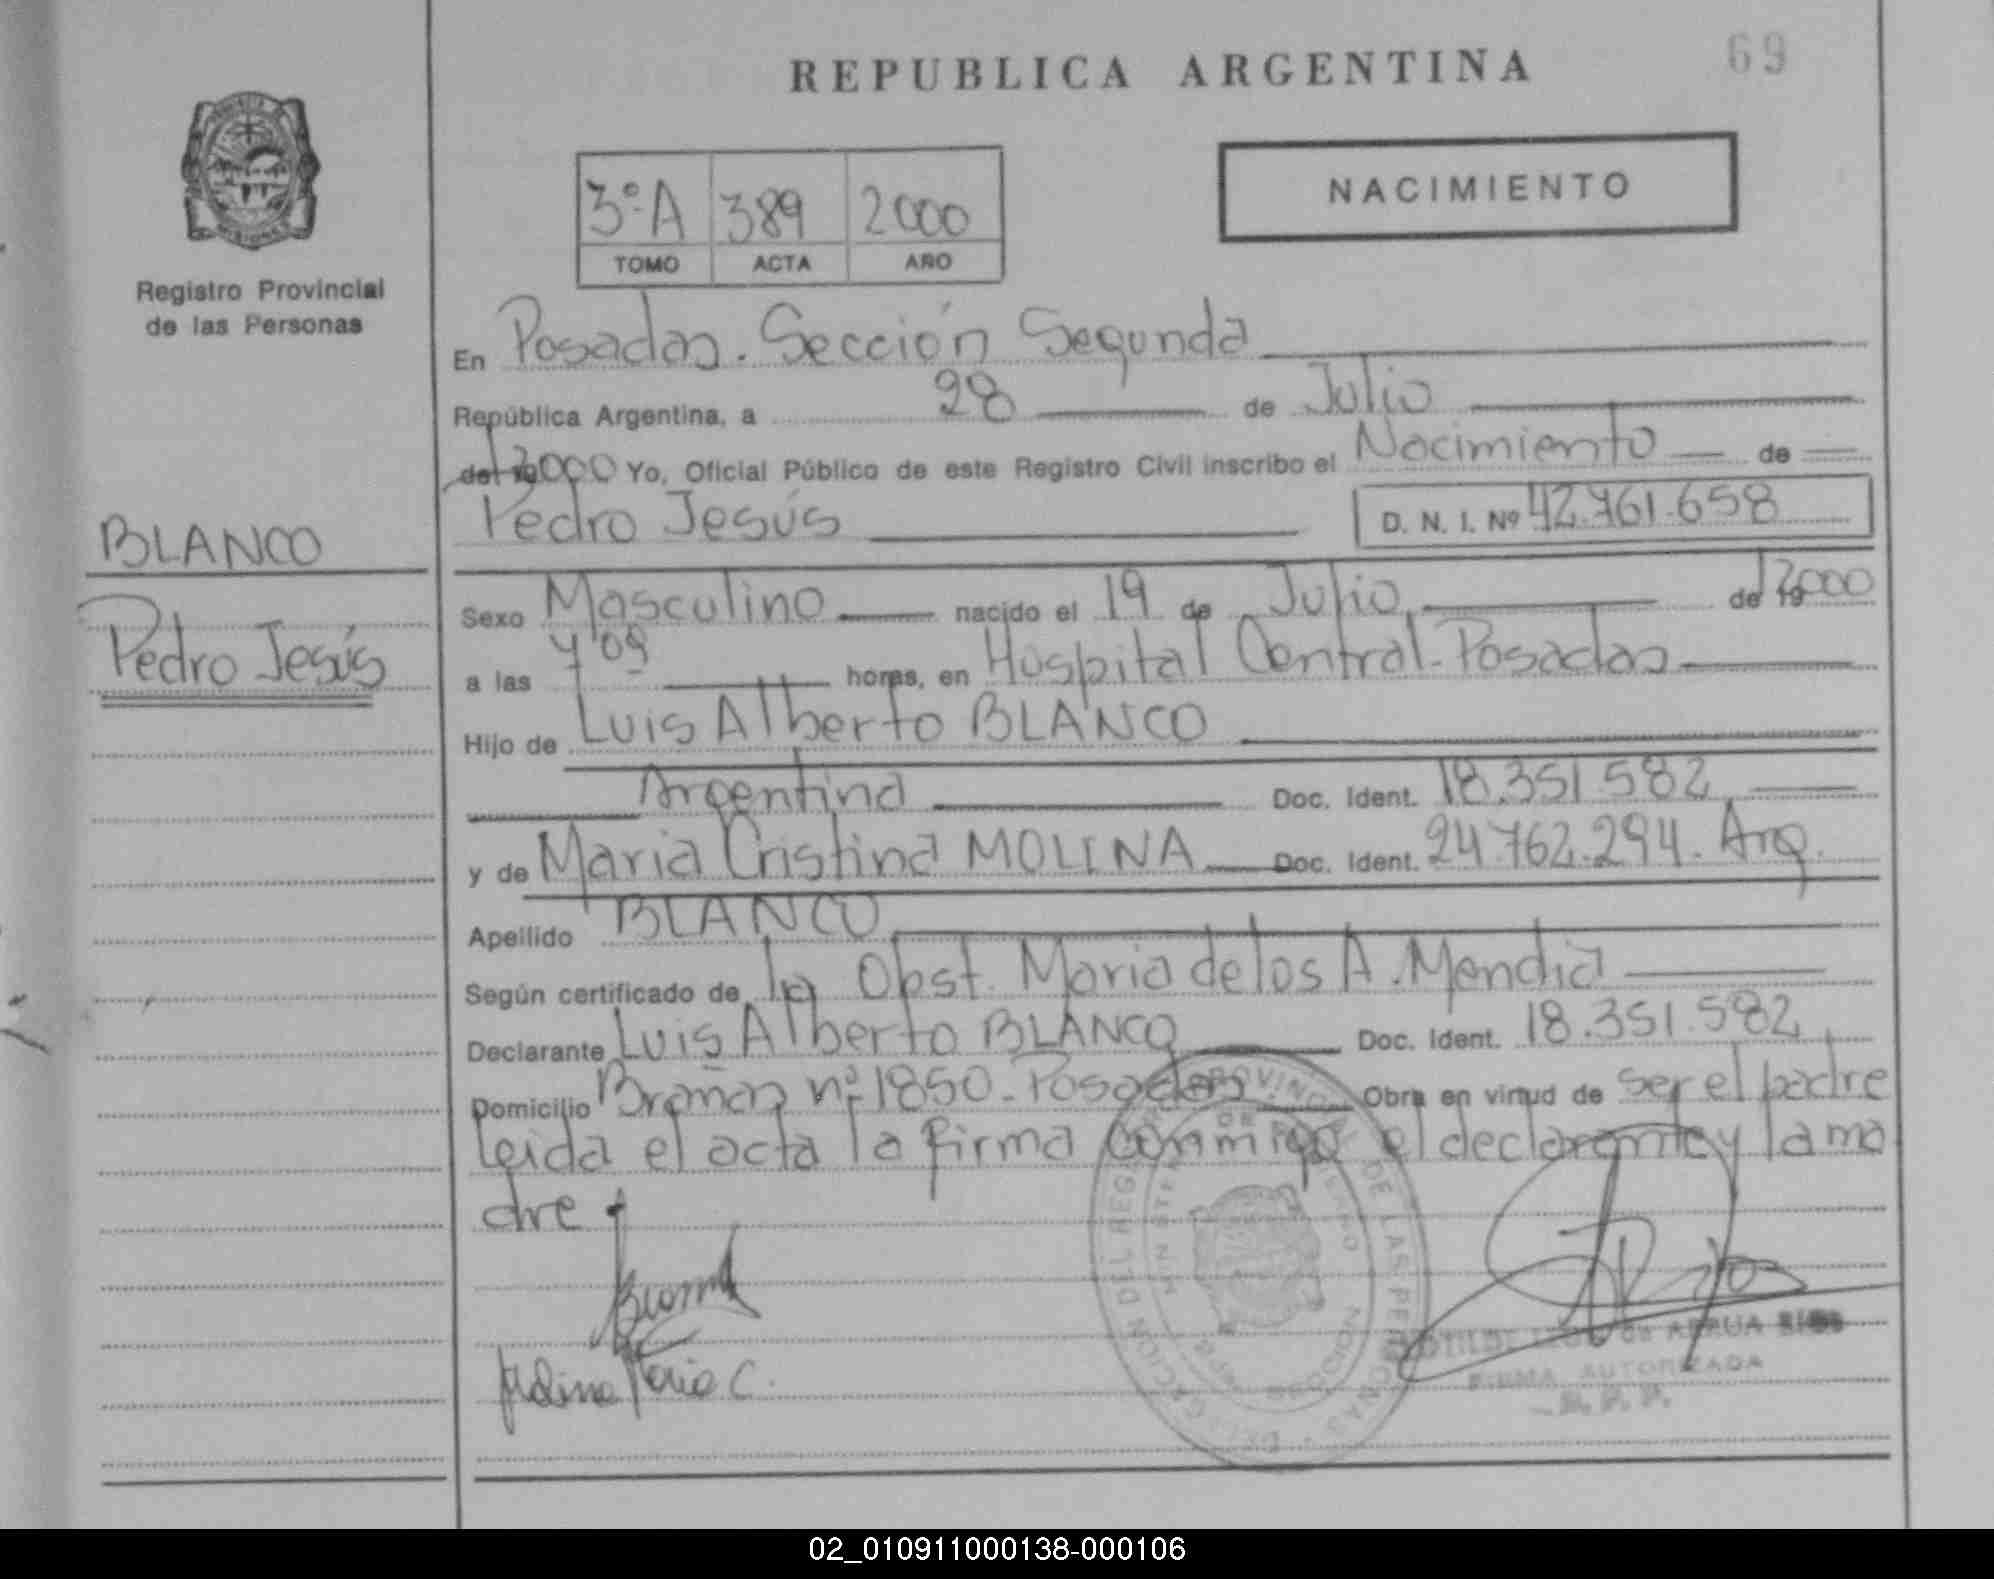 REPUBLICA ARGENTINA
69
Registro Provincial
de las Personas
3º A 389 2000
TOMO ACTA AÑO
NACIMIENTO
En Posadas. Sección Segunda
República Argentina, a 28 de Julio
del 2000 Yo, Oficial Público de este Registro Civil inscribo el Nacimiento de
Pedro Jesús D. N. I. Nº 42.761.658
BLANCO
Pedro Jesús
Sexo Masculino nacido el 19 de Julio de 2000
a las 4'08 horas, en Hospital Central. Posadas
Hijo de Luis Alberto BLANCO
Argentina Doc. Ident. 18.351.582
y de Maria Cristina MOLINA Doc. Ident. 24.762.294. Arg.
Apellido BLANCO
Según certificado de la Obst. Maria de los A. Mendia
Declarante Luis Alberto BLANCO Doc. Ident. 18.351.582
Domicilio Brañas nº 1850. Posadas Obra en virtud de ser el padre
leida el acta la firma conmigo el declarante y la ma
dre
Molina Maria C.
FIRMA AUTORIZADA
02_010911000138-000106